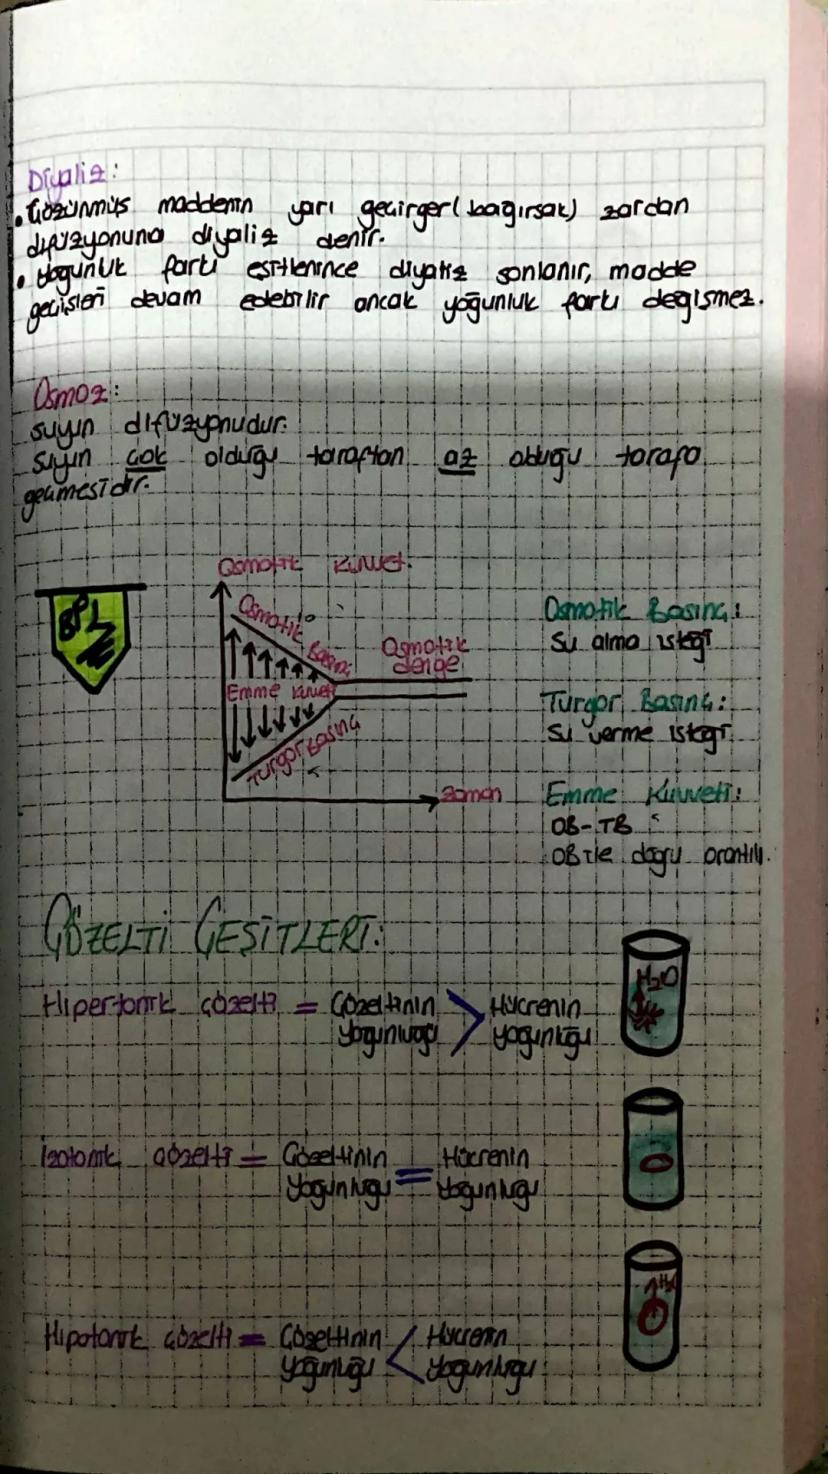 Diyaliz:
• Çözünmüş maddenin yarı geçirger (bağırsak) zardan
difüzyonuna diyaliz denir.
• Yogunluk farkı esitlenince diyaliz sonlanır, madde
geçişleri devam edebilir ancak yoğunluk farkı degismez.
Osmoz:
suyun difüzyonudur.
suyun çok olduğu taraftan az olduğu tarafa
geçmesidir.
Osmotik Kuvvet
BPL
Osmotik Basınç
Osmotik
denge
Emme kuvveti
Turgor Basıncı
zaman
Osmotik Basınç:
Su alma isteği
Turgor Basınç:
Su verme isteği
Emme Kuvveti:
OB-TB
OB ile doğru orantılı.
ÇÖZELTİ ÇEŞİTLERİ:
Hipertonik çözelti = Çözeltinin > Hücrenin
yoğunluğu yoğunluğu
H₂O
İzotonik çözelti = Çözeltinin = Hücrenin
Yoğunluğu Yoğunluğu
Hipotonik çözelti = Çözeltinin < Hücrenin
yoğunluğu Yoğunluğu